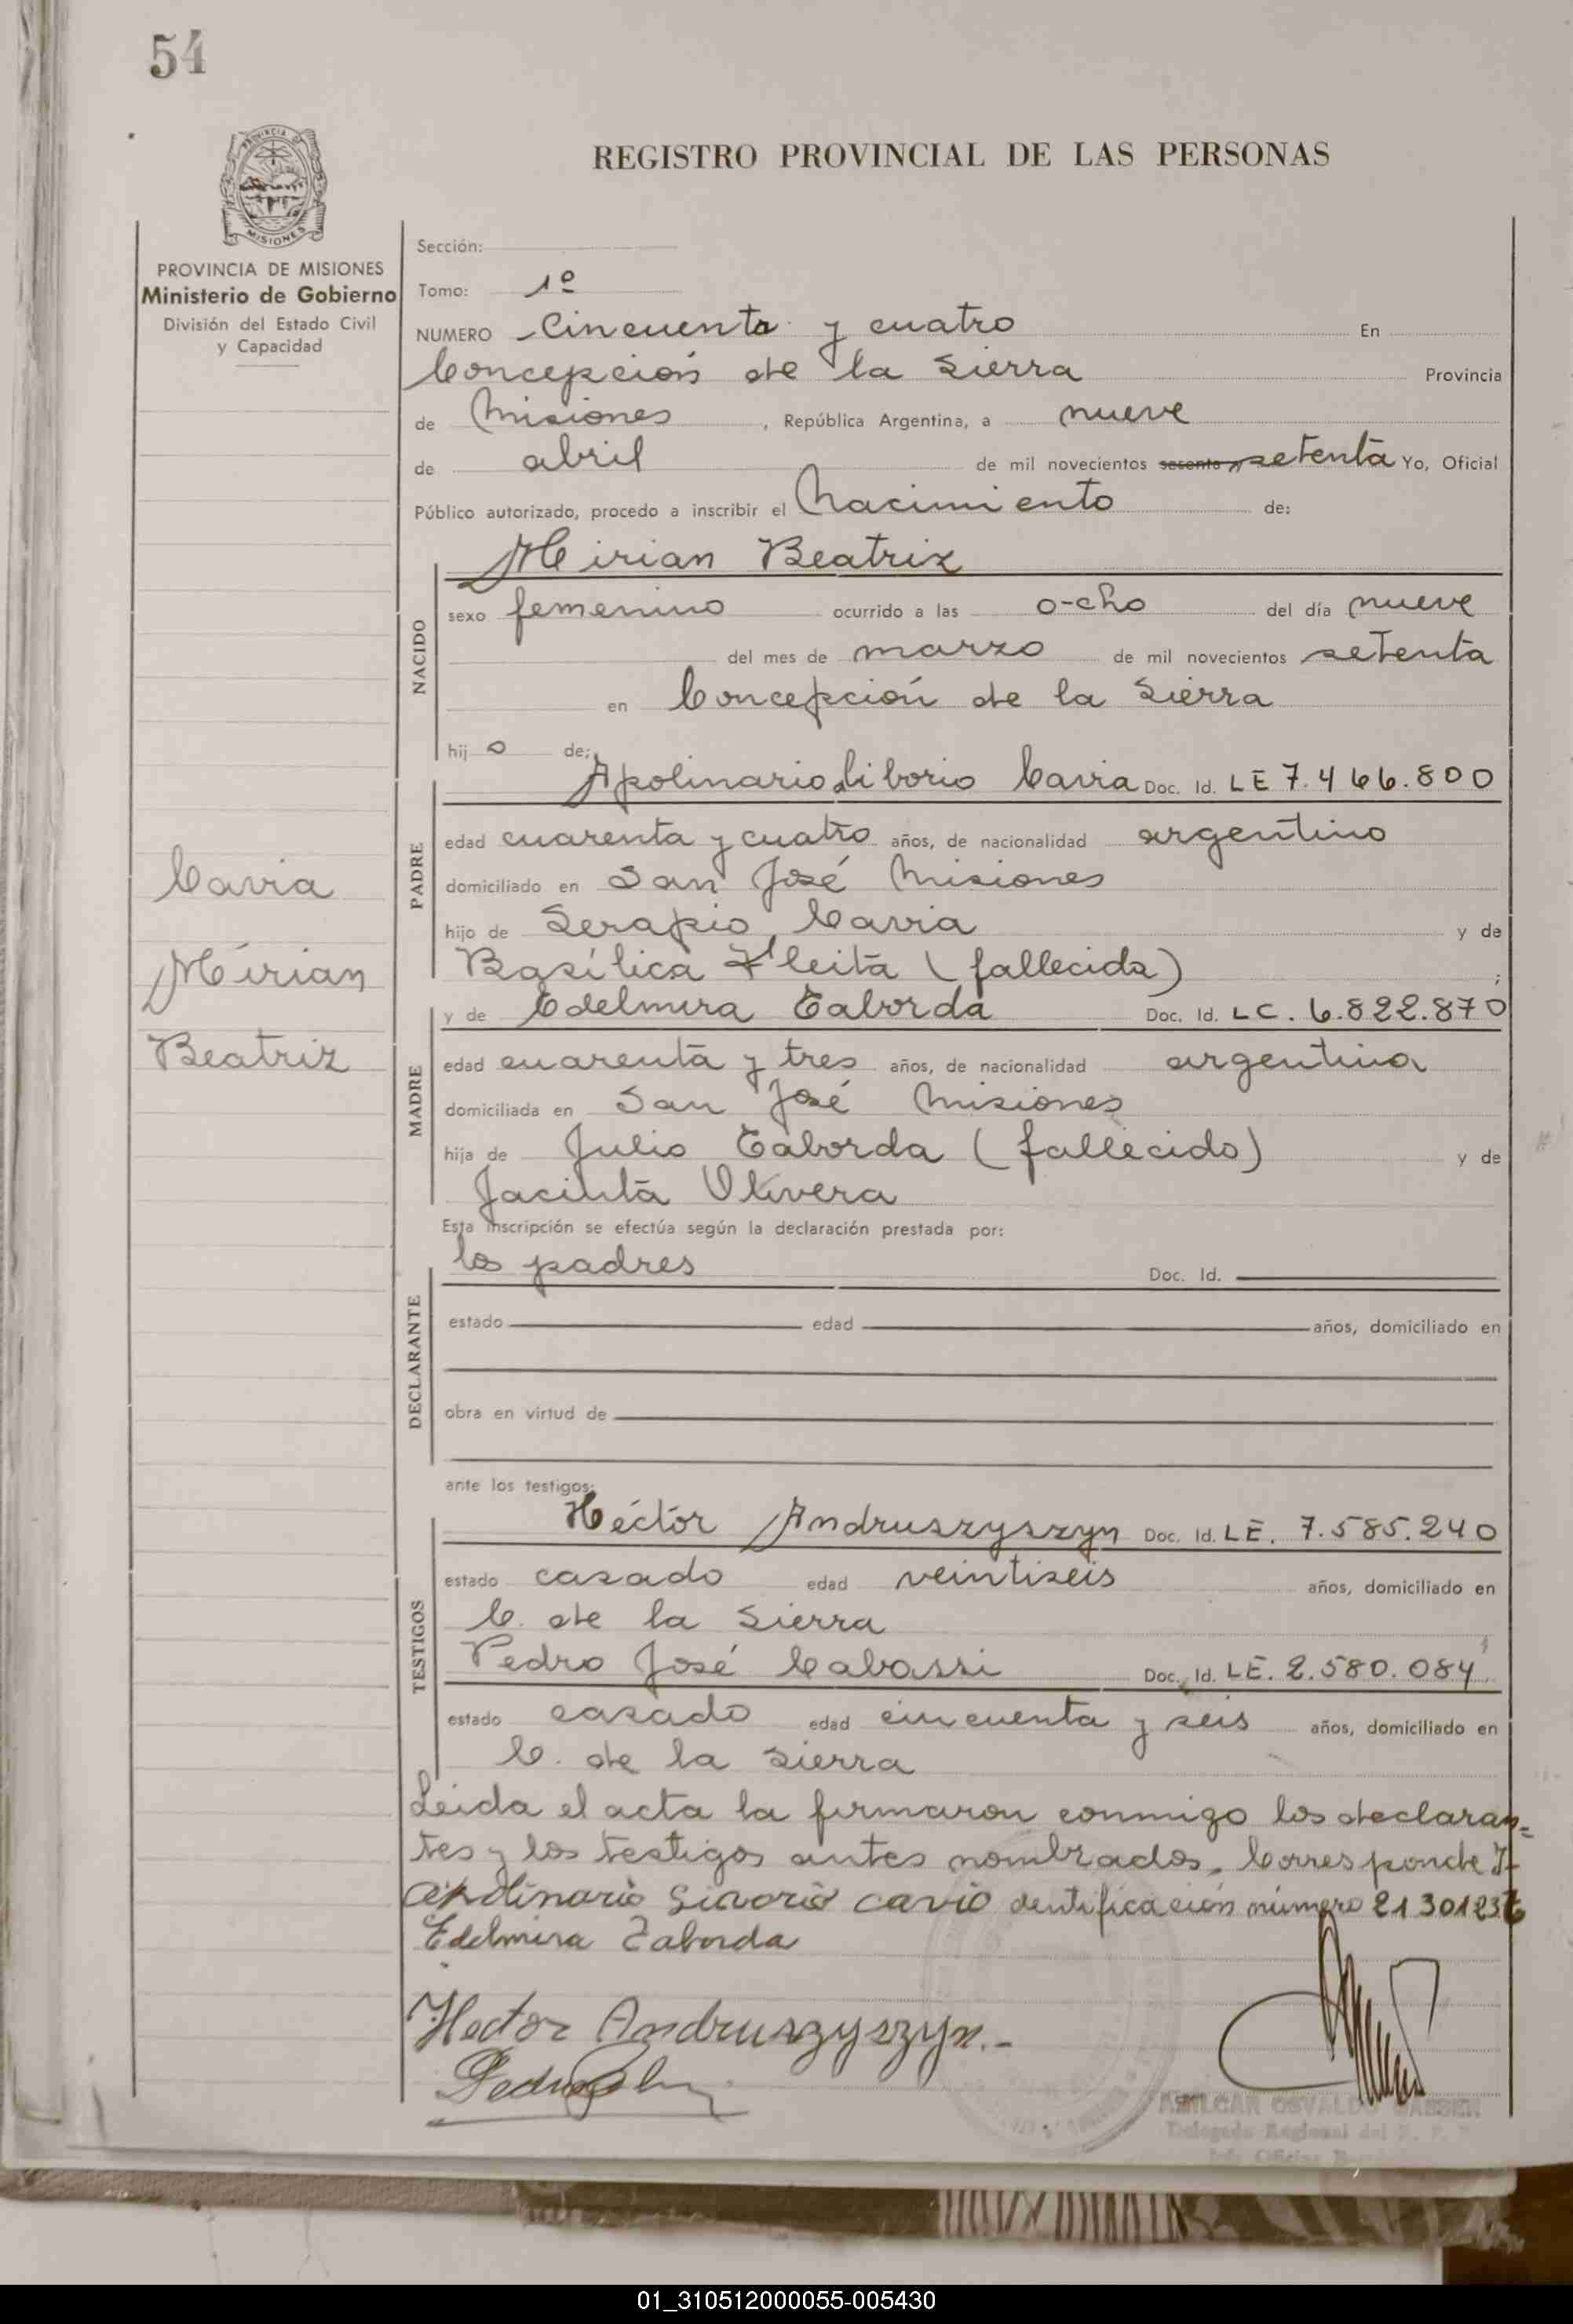 54
PROVINCIA DE
MISIONES
REGISTRO PROVINCIAL DE LAS PERSONAS
PROVINCIA DE MISIONES
Ministerio de Gobierno
División del Estado Civil
y Capacidad
Cavia
Mirian
Beatriz
Sección:
Tomo: 1º
NUMERO Cincuenta y cuatro En
Concepción de la Sierra Provincia
de Misiones , República Argentina, a nueve
de abril de mil novecientos sesenta y setenta Yo, Oficial
Público autorizado, procedo a inscribir el Nacimiento de:
NACIDO
Mirian Beatriz
sexo femenino ocurrido a las o-cho del día nueve
del mes de marzo de mil novecientos setenta
en Concepción de la Sierra
hij o de:
PADRE
Apolinario Liborio Cavia Doc. Id. LE 7.466.800
edad cuarenta y cuatro años, de nacionalidad argentino
domiciliado en San José Misiones
hijo de Serapio Cavia y de
Basílica Fleita (fallecida) ;
MADRE
y de Edelmira Taborda Doc. Id. LC. 6.822.870
edad cuarenta y tres años, de nacionalidad argentina
domiciliada en San José Misiones
hija de Julio Taborda (fallecido) y de
Jacinta Olivera
Esta inscripción se efectúa según la declaración prestada por:
DECLARANTE
los padres Doc. Id.
estado edad años, domiciliado en
obra en virtud de
ante los testigos:
TESTIGOS
Héctor Andruszyszyn Doc. Id. LE. 7.585.240
estado casado edad veintiseis años, domiciliado en
C. de la Sierra
Pedro José Cabassi Doc. Id. LE. 2.580.084
estado casado edad cincuenta y seis años, domiciliado en
C. de la Sierra
Leida el acta la firmaron conmigo los declaran=
tes y los testigos antes nombrados. Corresponde I-
dentificación número 21301236
Edelmira Taborda
Hector Andruszyszyn.-
AMILCAR OSVALDO
Delegado Regional del
01_310512000055-005430